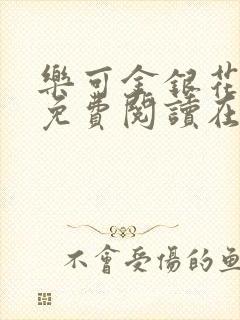 樂可金銀花
免費閱讀在
不會受傷的魚